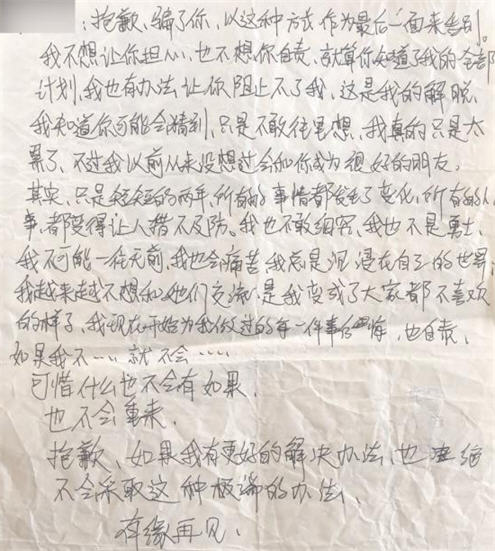 :抱歉、骗了你，以这种方式作为最后一面来告别。
我不想让你担心，也不想你自责，就算你知道了我的全部
计划，我也有办法让你阻止不了我，这是我的解脱，
我知道你可能会猜到，只是不敢往里想，我真的只是太
累了、不过我以前从来没想过会和你成为很好的朋友，
其实、只是短短的两年，所有的事情都发生了变化，所有的人
事，都变得让人措不及防。我也不敢细究，我也不是勇士，
我不可能一往无前，我也会痛苦我总是沉浸在自己的世界
我越来越不想和她们交流，是我变成了大家都不喜欢
的样子，我现在开始为我做过的每一件事后悔，也自责，
如果我不……就不会……
可惜什么也不会有如果，
也不会重来，
抱歉、如果我有更好的解决办法，也
不会采取这种极端的办法，
有缘再见、